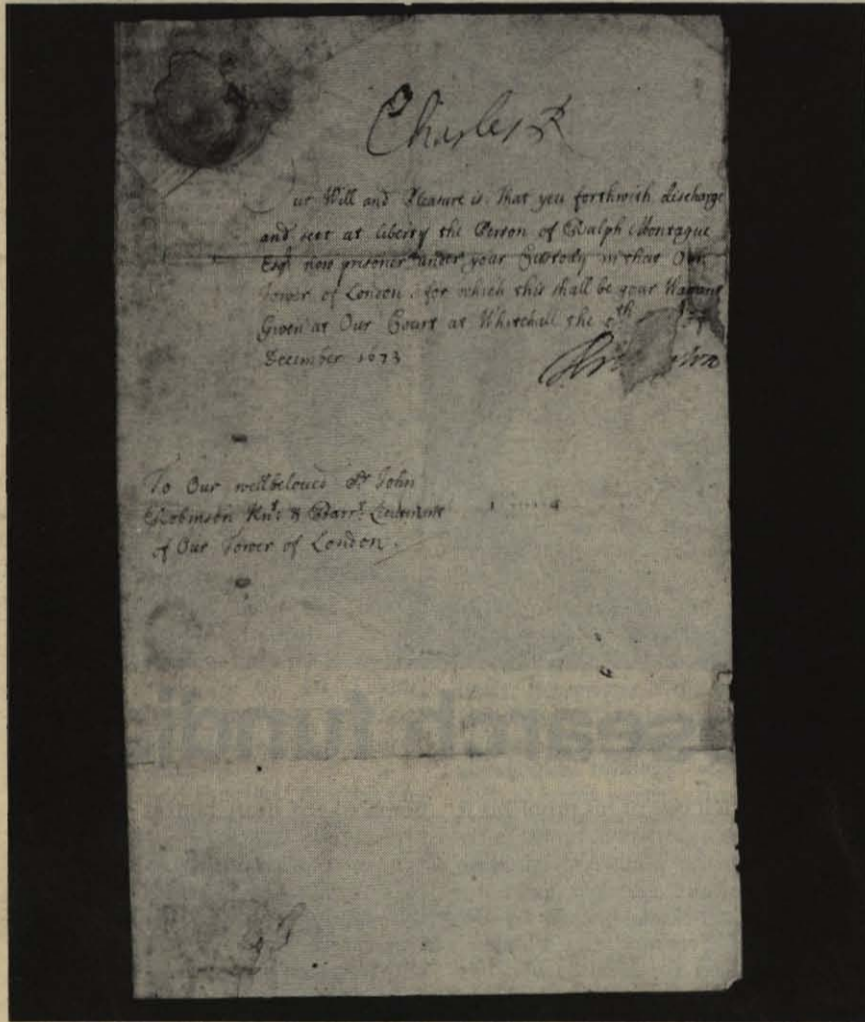 Charles R
Our Will and Pleasure is, that you forthwith discharge
and sett at liberty the Person of Ralph Montague
Esqr. now prisoner under your Custody in that Our
Tower of London. for which this shall be your Warrant
Given at Our Court at Whitehall the th of
December 1673
To Our wellbeloved Sr. John
Robinson Knt. & Barrt. Lieutennt
of Our Tower of London.
search fundi